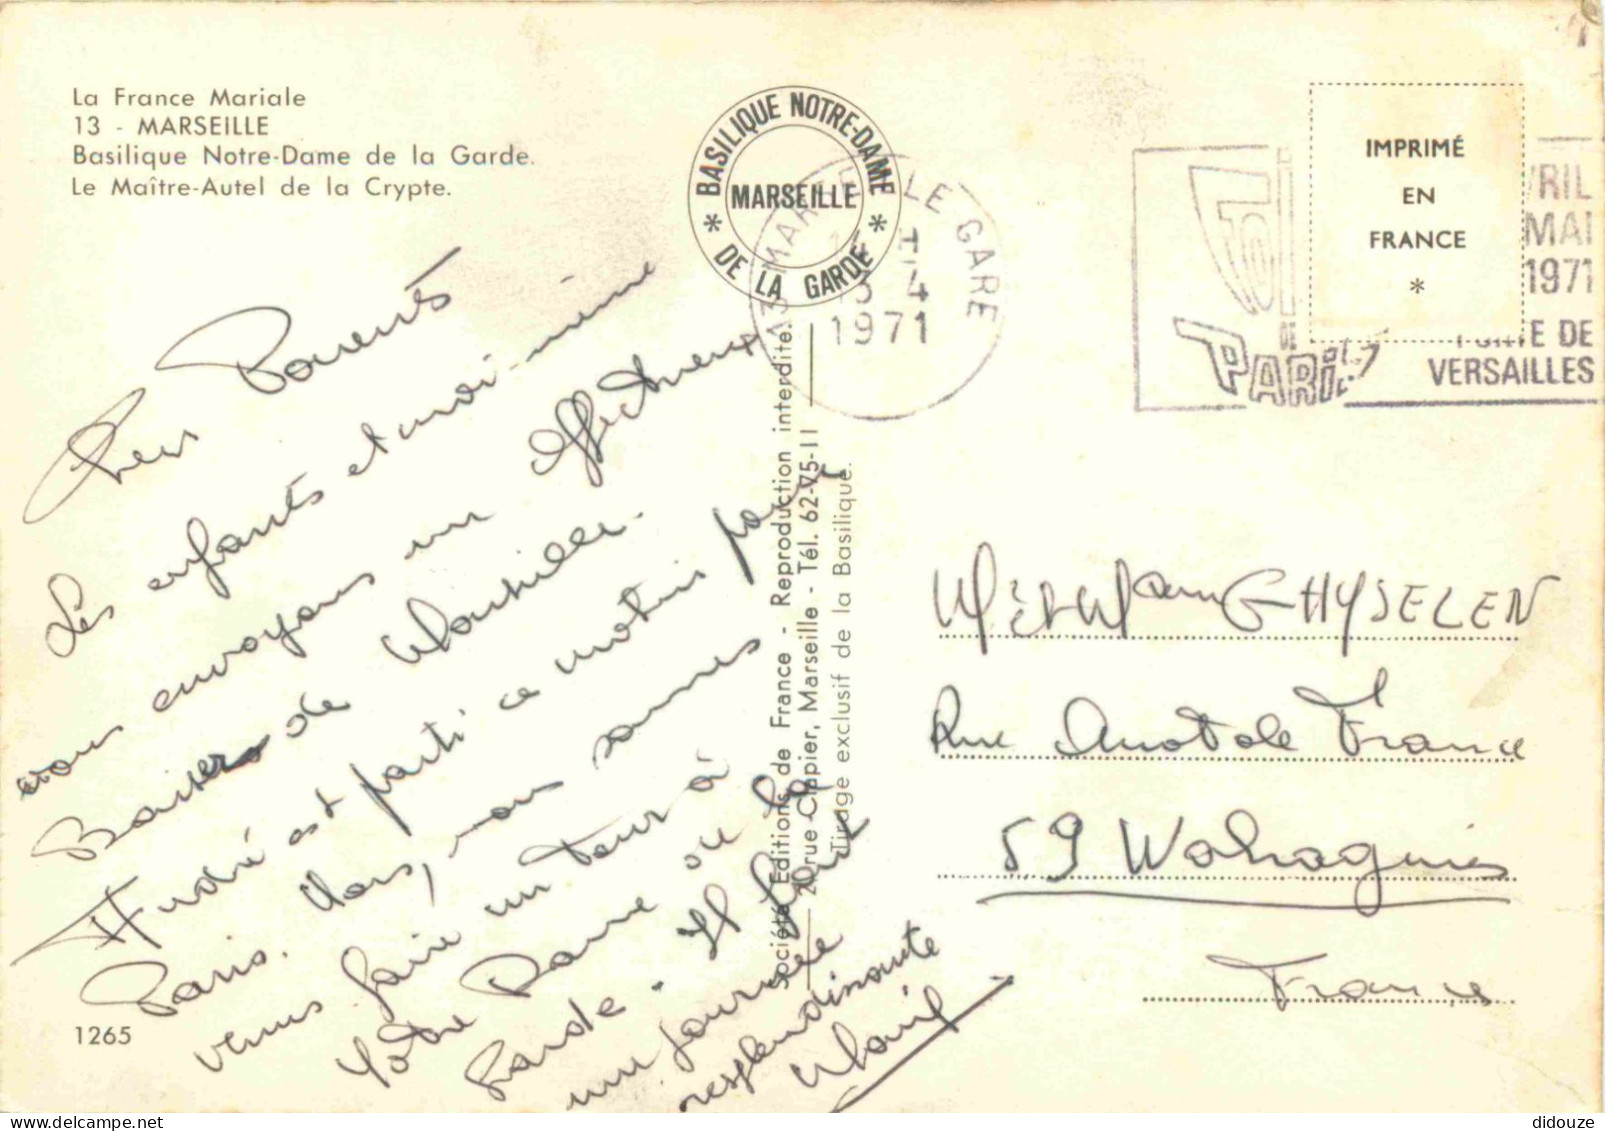 La France Mariale
13 - MARSEILLE
Basilique Notre-Dame de la Garde.
Le Maître-Autel de la Crypte.
BASILIQUE NOTRE-DAME
MARSEILLE
* DE LA GARDE *
13 MARSEILLE GARE
13 - 4
1971
FOIRE
DE
PARIS
AVRIL
MAI
1971
PORTE DE
VERSAILLES
IMPRIMÉ
EN
FRANCE
*
Chers Parents
Les enfants et moi-même
vous envoyons un affectueux
Baisers de Marseille.
André est parti ce matin pour
Paris. Alors, nous sommes
venus faire un tour à
Notre Dame de la
Garde. Il fait
une journée
resplendissante
Marif
Société Editions de France - Reproduction interdite.
20, rue Clapier, Marseille - Tél. 62-75-11
Tirage exclusif de la Basilique.
Mr et Mme GHYSELEN
Rue Anatole France
59 Wahagnies
France
1265
didouze